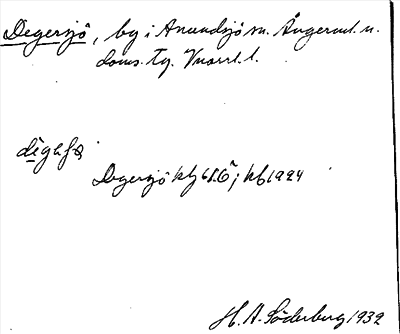 Degersjö, by i Anundsjö sn. Ångerml. n.
doms. tg. Vnorrl. l.
Degersjö kb 1924
H. A. Söderberg 1932